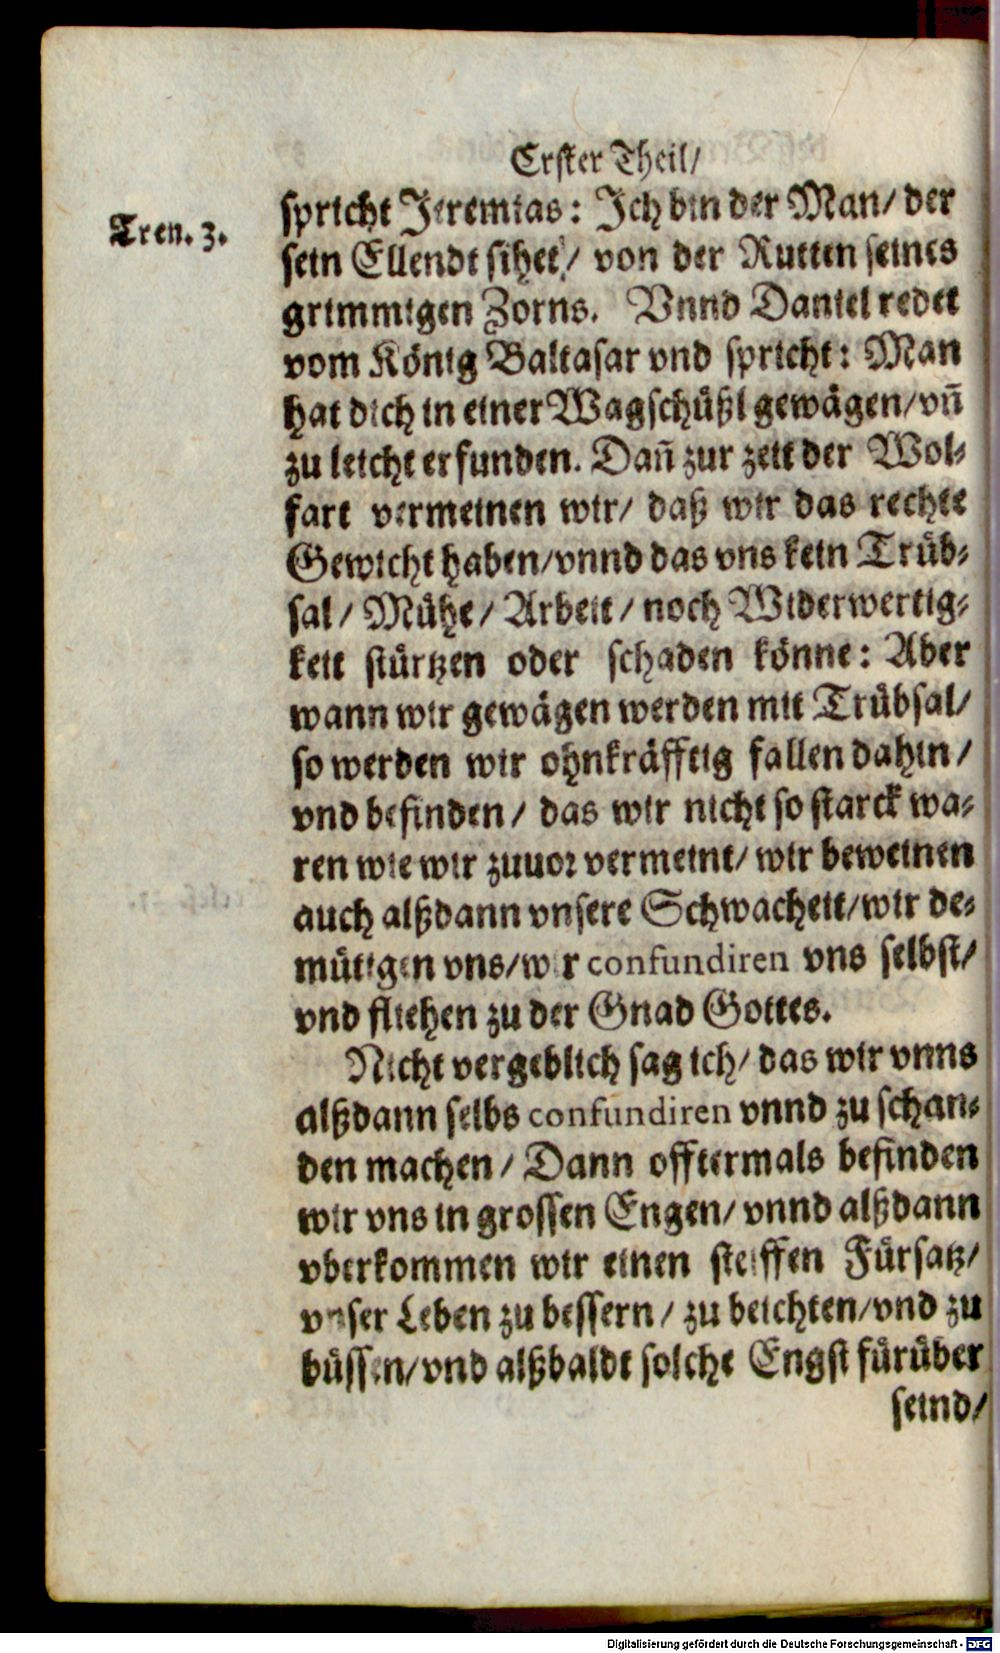 Erster Theil/
Tren. 3.
spricht Jeremias: Ich bin der Man/ der
sein Ellendt sihet/ von der Rutten seines
grimmigen Zorns. Vnnd Daniel redet
vom König Baltasar vnd spricht: Man
hat dich in einer Wagschüßl gewägen/ vñ
zu leicht erfunden. Dañ zur zeit der Wol-
fart vermeinen wir/ daß wir das rechte
Gewicht haben/ vnnd das vns kein Trüb-
sal/ Mühe/ Arbeit/ noch Widerwertig-
keit stürtzen oder schaden könne: Aber
wann wir gewägen werden mit Trübsal/
so werden wir ohnkräfftig fallen dahin/
vnd befinden/ das wir nicht so starck wa-
ren wie wir zuuor vermeint/ wir beweinen
auch alßdann vnsere Schwacheit/ wir de-
mütigen vns/ wir confundiren vns selbst/
vnd fliehen zu der Gnad Gottes.
Nicht vergeblich sag ich/ das wir vnns
alßdann selbs confundiren vnnd zu schan-
den machen/ Dann offtermals befinden
wir vns in grossen Engen/ vnnd alßdann
vberkommen wir einen steiffen Fürsatz/
vnser Leben zu bessern/ zu beichten/ vnd zu
büssen/ vnd alßbaldt solche Engst fürüber
seind/
Digitalisierung gefördert durch die Deutsche Forschungsgemeinschaft - DFG